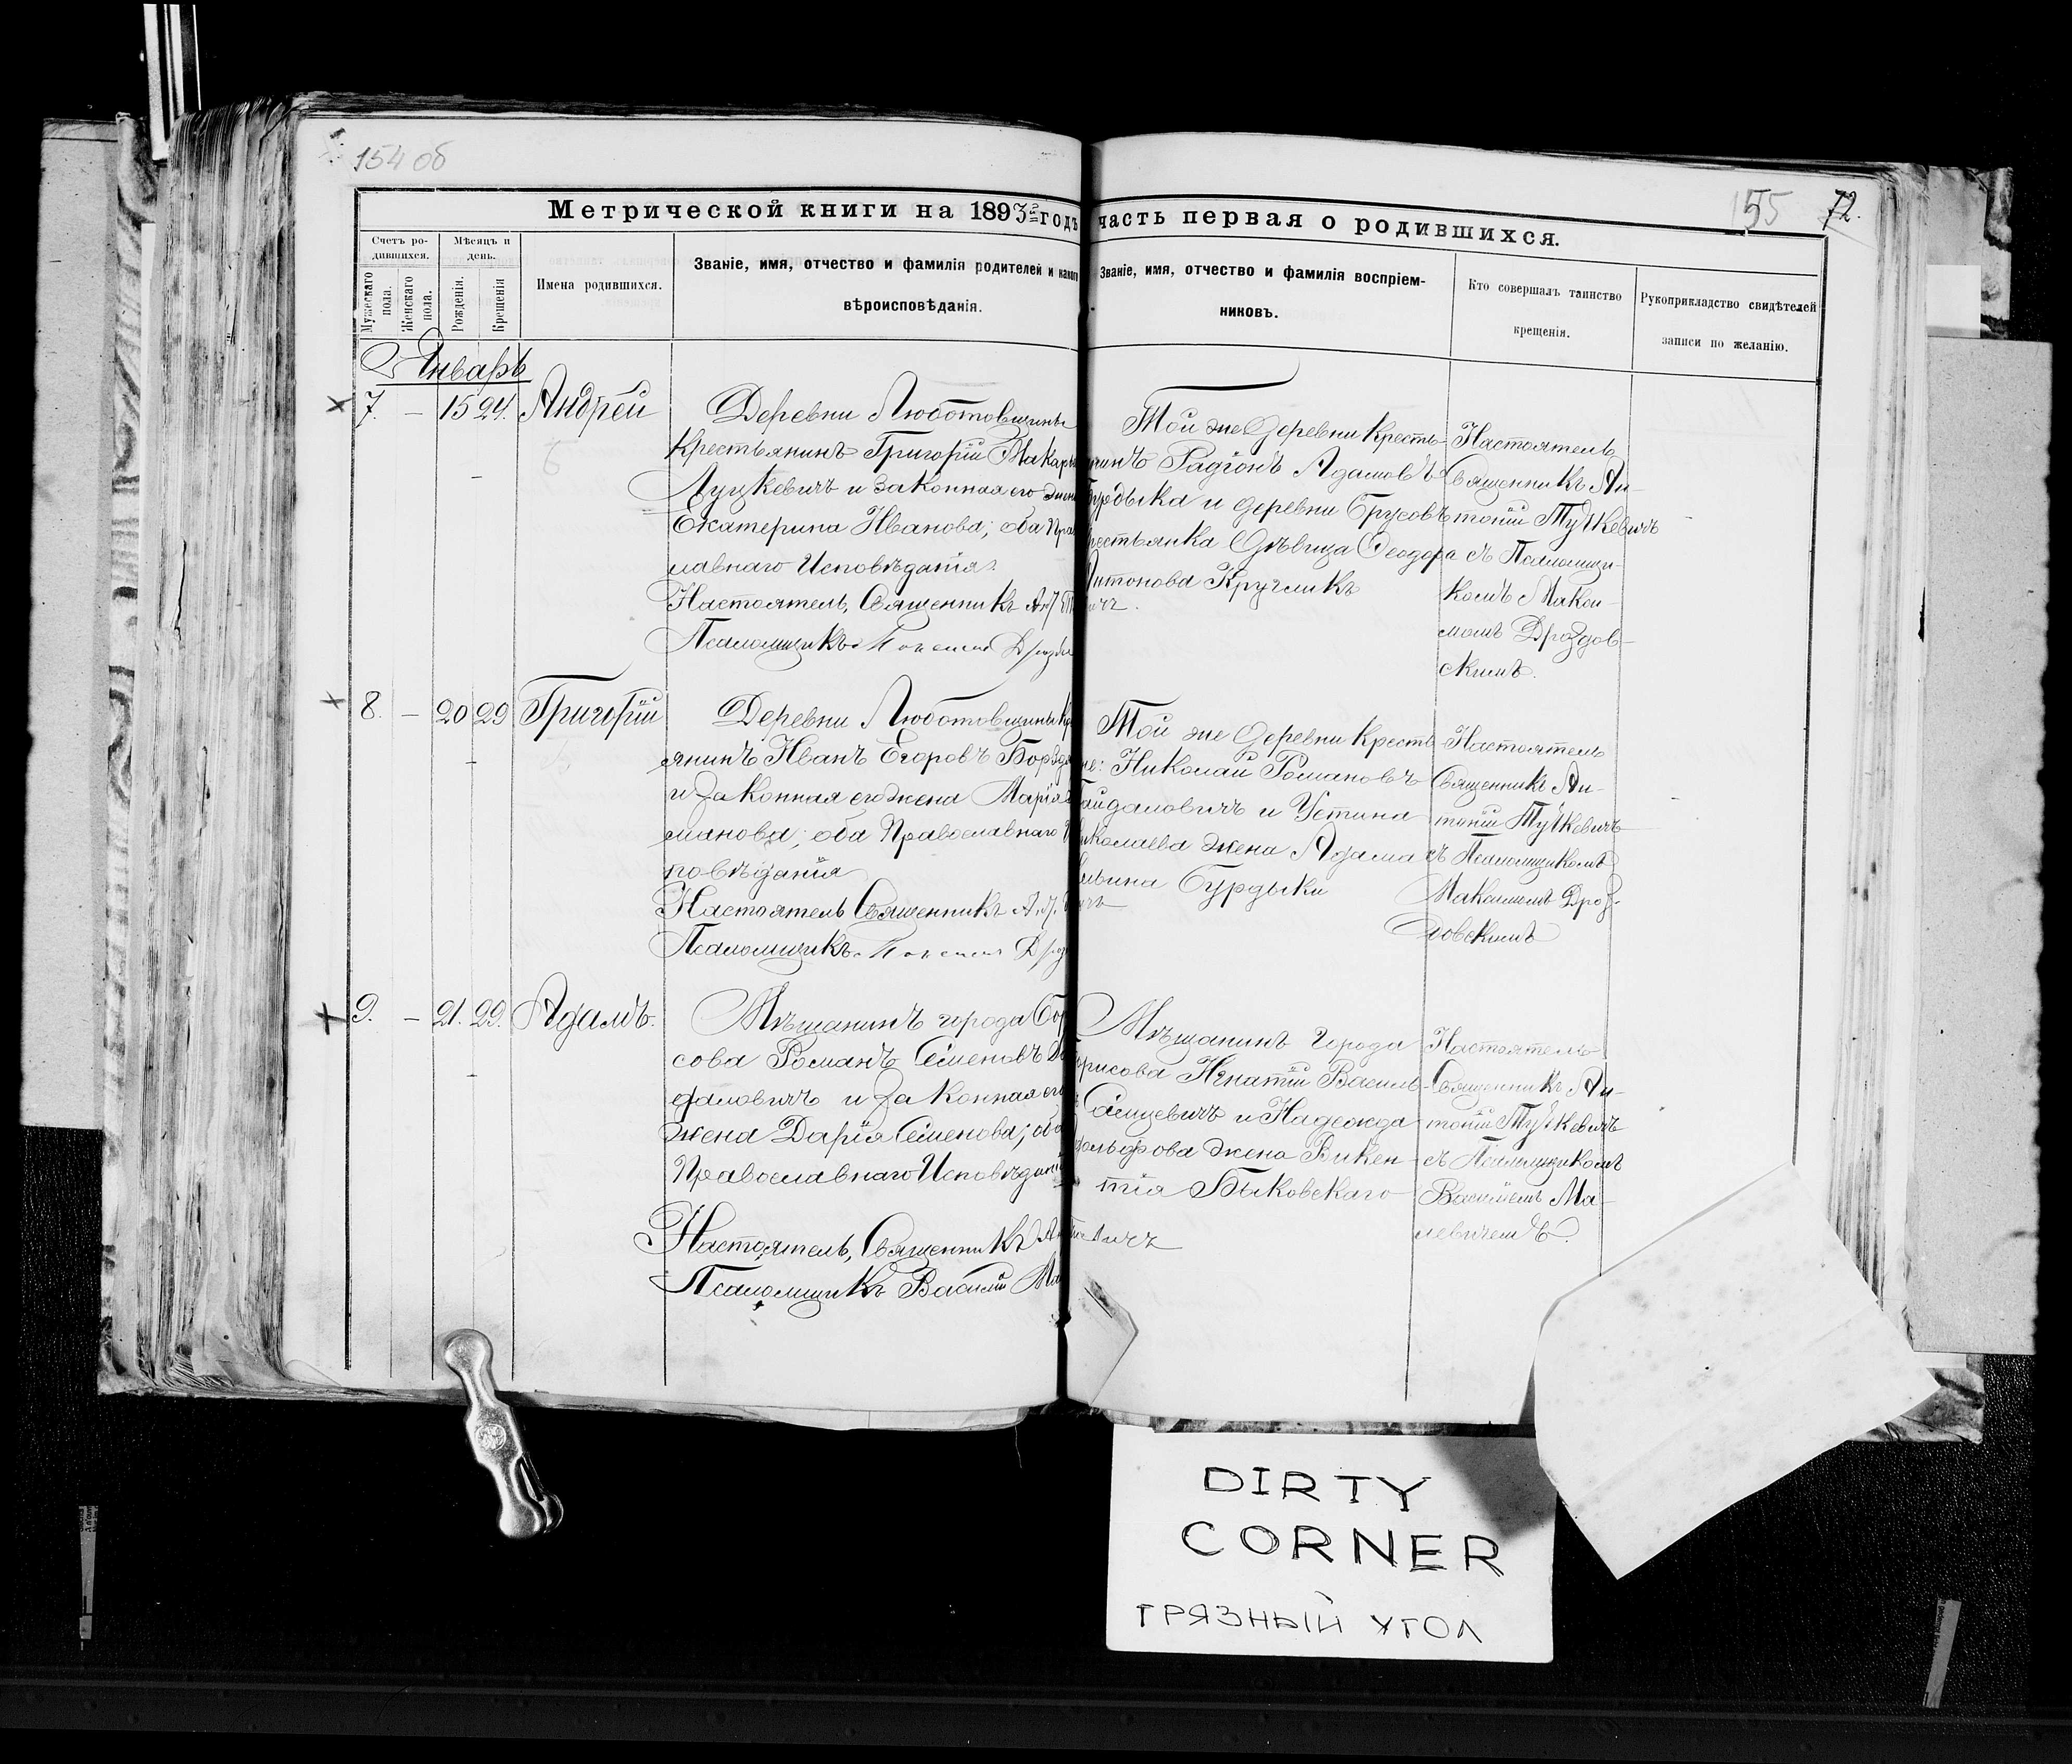 154 об
155 72.
Метрической книги на 1893 годъ
часть первая о родившихся.
Счетъ родившихся.
Мужескаго пола.
Женскаго пола.
Мѣсяцъ и день.
Рожденія.
Крещенія
Имена родившихся.
Званіе, имя, отчество и фамилія родителей и какого
вѣроисповѣданія.
Званіе, имя, отчество и фамилія воспріем-
никовъ.
Кто совершалъ таинство
крещенія.
Рукоприкладство свидѣтелей
записи по желанію.
Январь
7. – 15 24. Андрей
Деревни Любатовщины
Крестьянинъ Григорій Макар
Луцкевичъ и законная его жена
Екатерина Иванова; оба Пра
славнаго Исповѣданія.
Настоятель, Священникъ Ант.
Псаломщикъ Дроздо
Той же деревни Кресть-
янинъ Радіонъ Адамовъ
Бурдыка и деревни Брусовъ
крестьянка Дѣвица Ѳеодора
Антонова Кругликъ
Настоятель
Священникъ Ан-
тоній Тучкевичъ
съ Псаломщи-
комъ Макси-
момъ Дроздов-
скимъ.
8. – 20 29 Григорій
Деревни Любатовщины Кр
янинъ Иванъ Егоровъ
и законная его жена Марія
манова; оба Православнаго И
повѣданія
Настоятель Священникъ Ант.
Псаломщикъ Дроз
Той же деревни Кресть-
не: Николай Романовъ
Гайдаловичъ и Устина
Николаева жена Адама
Бурдыки
Настоятель
Священникъ Ан-
тоній Тучкевичъ
съ Псаломщикомъ
Максимомъ Дроз-
довскимъ
9. – 21. 29. Адамъ.
Мѣщанинъ города Бор
сова Романъ Семеновъ
даловичъ и законная его
жена Дарія Семенова; оба
Православнаго Исповѣданія
Настоятель, Священникъ
Псаломщикъ Василій Ма
Мѣщанинъ города
Борисова Игнатій Василь-
Сащевичъ и Надежда
жена Викен-
тія Быковскаго
Настоятель
Священникъ Ан-
тоній Тучкевичъ
съ Псаломщикомъ
Василіемъ Ма-
левичемъ.
DIRTY
CORNER
ГРЯЗНЫЙ УГОЛ